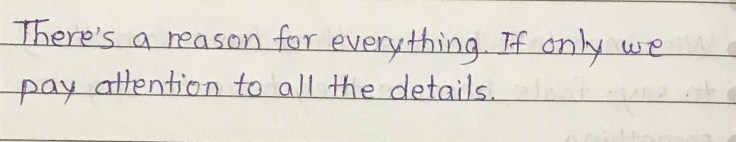 There's a reason for everything. If only we
pay attention to all the details.